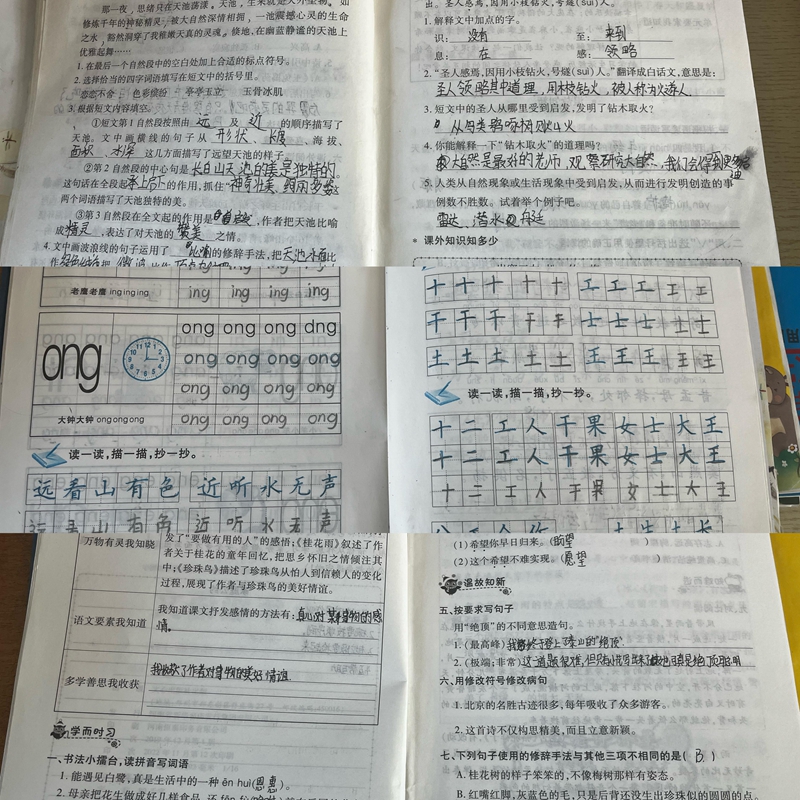 那一夜，思绪只在天池荡漾。天池，生来就是天外圣物。如
修炼千年的神秘精灵，被大自然深情相拥，一池震撼心灵的生命
之水，豁然洞穿了我稚嫩天真的灵魂。倏地，在幽蓝静谧的天池上
优雅起舞……
1. 在最后一个自然段中的空白处加上合适的标点符号。
2. 选择恰当的四字词语填写在短文中的括号里。
恋恋不舍 色彩缤纷 亭亭玉立 玉骨冰肌
3. 根据短文内容填空。
①短文第1自然段按照由 远 及 近 的顺序描写了
天池。文中画横线的句子从 形状、长度、海拔、
面积、水深 这几方面描写了远望天池的样子。
②第2自然段的中心句是 长白山天池的美是独特的。
这句话在全段起 承上启下 的作用，抓住
两个词语描写了天池独特的美。
③第3自然段在全文起的作用是 ，作者把天池比喻
成 精灵 ，表达了对天池的 赞美 之情。
4. 文中画波浪线的句子运用了 比喻 的修辞手法，把 天池水面 比
出。圣人感焉，因用小枝钻火，号燧(suì)人。
1. 解释文中加点的字。
识： 没有 至： 来到
息： 在 感： 领略
2. “圣人感焉，因用小枝钻火，号燧(suì)人。”翻译成白话文，意思是：
圣人领略其中道理，用木枝钻火，被人称为燧人
3. 短文中的圣人从哪里受到启发，发明了钻木取火？
从鸟类鹗啄树则火
4. 你能解释一下“钻木取火”的道理吗？
大自然是最好的老师，观察研究大自然，我们会得到更多
5. 人类从自然现象或生活现象中受到启发，从而进行发明创造的事
例数不胜数。试着举个例子吧。
雷达、潜水 舟廷
* 课外知识知多少
ing ing ing ing
老鹰老鹰 ing ing ing
ing ing ing ing
ong
ong ong ong ong
ong ong ong ong
ong ong ong ong
大钟大钟 ong ong ong
ong ong ong ong
读一读，描一描，抄一抄。
远看山有色 近听水无声
远看山有色 近听水无声
十十十十十 工工工工工
干干干干干 士士士士士
土土土土土 王王王王王
读一读，描一描，抄一抄。
十二工人干果女士大王
十二工人干果女士大王
十二工人干果女士大王
万物有灵我知晓
发了“要做有用的人”的感悟；《桂花雨》叙述了作
者关于桂花的童年回忆，把思乡怀旧之情倾注其
中；《珍珠鸟》描述了珍珠鸟从怕人到信赖人的变化
过程，展现了作者与珍珠鸟的美好情谊。
语文要素我知道
我知道课文抒发感情的方法有： 真心对某事物的感
情。
多学善思我收获
我收获了作者对事物的美好情谊
学而时习
一、书法小擂台，读拼音写词语
1. 能遇见白鹭，真是生活中的一种 ēn huì(恩惠)。
2. 母亲把花生做成好几样食品，还
(1) 希望你早日归来。(盼望)
(2) 这个希望不难实现。(愿望)
温故知新
五、按要求写句子
用“绝顶”的不同意思造句。
1. (最高峰) 我终于登上泰山的绝顶.
2. (极端；非常) 这一道题很难，但
六、用修改符号修改病句
1. 北京的名胜古迹很多，每年吸收了众多游客。
2. 这首诗不仅构思精美，而且立意新颖。
七、下列句子使用的修辞手法与其他三项不相同的是( B )
A. 桂花树的样子笨笨的，不像梅树那样有姿态。
B. 红嘴红脚，灰蓝色的毛，只是后背还没生出珍珠似的圆圆的点。